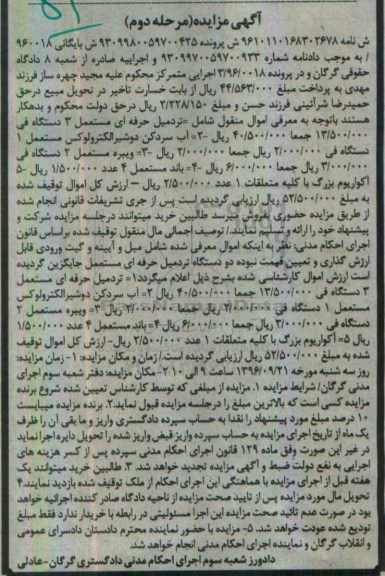 آگهی مزایده(مرحله دوم)
ش نامه ۹۶۱۰۱۱۰۱۶۸۳۰۲۶۷۸ ش پرونده ۹۳۰۹۹۸۰۰۵۹۷۰۰۴۲۵ ش بایگانی ۹۶۰۰۱۸
/ به موجب دادنامه شماره ۹۳۰۹۹۷۰۰۵۹۷۰۰۹۳۳ و اجراییه صادره از شعبه ۸ دادگاه
حقوقی گرگان و در پرونده ۳/۹۶/۰۰۱۸ اجرایی متمرکز محکوم علیه مجید چهره ساز فرزند
مهدی به پرداخت مبلغ ۴۴/۵۶۳/۰۰۰ ریال از بابت خسارت تاخیر در تحویل مبیع درحق
حمیدرضا شرآئینی فرزند حسن و مبلغ ۲/۲۲۸/۱۵۰ ریال درحق دولت محکوم و بدهکار
هستند باتوجه به معرفی اموال منقول شامل =تردمیل حرفه ای مستعمل ۳ دستگاه فی
۱۳/۵۰۰/۰۰۰ ریال جمعا ۴۰/۵۰۰/۰۰۰ ریال -۲= آب سردکن دوشیرالکترولوکس مستعمل ۱
دستگاه فی ۲/۰۰۰/۰۰۰ ریال جمعا ۲/۰۰۰/۰۰۰ ریال -۳= ویبره مستعمل ۲ دستگاه فی
۳/۰۰۰/۰۰۰ ریال جمعا ۶/۰۰۰/۰۰۰ ریال -۴= باند مستعمل ۴ عدد ۱/۵۰۰/۰۰۰ ریال -۵
آکواریوم بزرگ با کلیه متعلقات ۱ عدد ۲/۵۰۰/۰۰۰ ریال – ارزش کل اموال توقیف شده
به مبلغ ۵۲/۵۰۰/۰۰۰ ریال ارزیابی گردیده است پس از جری تشریفات قانونی انجام شده
از طریق مزایده حضوری بفروش میرسد طالبین خرید میتوانند درجلسه مزایده شرکت و
پیشنهاد خود را ارائه و تسلیم نمایند/. توصیف اجمالی مال منقول توقیف شده براساس قانون
اجرای احکام مدنی: نظر به اینکه اموال معرفی شده شامل مبل و آیینه و گیت ورودی قابل
ارزش گذاری و تعیین قیمت نبوده دو دستگاه تردیل حرفه ای مستعمل جایگزین گردیده
است ارزش اموال کارشناسی شده بشرح ذیل اعلام میگردد۱= تردمیل حرفه ای مستعمل
۳ دستگاه فی ۱۳/۵۰۰/۰۰۰ ریال جمعا ۴۰/۵۰۰/۰۰۰ ریال ۲= آب سردکن دوشیرالکترولوکس
مستعمل ۱ دستگاه فی ۲/۰۰۰/۰۰۰ ریال جمعا ۲/۰۰۰/۰۰۰ ریال ۳= ویبره مستعمل ۲
دستگاه فی ۳/۰۰۰/۰۰۰ ریال جمعا ۶/۰۰۰/۰۰۰ ریال ۴= باند مستعمل ۴ عدد ۱/۵۰۰/۰۰۰
ریال ۵= آکواریوم بزرگ با کلیه متعلقات ۱ عدد ۲/۵۰۰/۰۰۰ ریال- ارزش کل اموال توقیف
شده به مبلغ ۵۲/۵۰۰/۰۰۰ ریال ارزیابی گردیده است./ زمان و مکان مزایده: ۱- زمان مزایده:
روز سه شنبه مورخه ۱۳۹۶/۰۹/۲۱ ساعت ۹ الی ۱۰ ۲- مکان مزایده: دفتر شعبه سوم اجرای
مدنی گرگان/ شرایط مزایده ۱. مزایده از مبلغی که توسط کارشناس تعیین شده شروع برنده
مزایده کسی است که بالاترین مبلغ را درجلسه مزایده قبول نماید.۲. برنده مزایده میبایست
۱۰ درصد مبلغ مورد پیشنهاد را نقدا به حساب سپرده دادگستری واریز و ما بقی آن را ظرف
یک ماه از تاریخ اجرای مزایده به حساب سپرده واریز قبض واریز شده را تحویل دایره اجرا نماید
در غیر این صورت وفق ماده ۱۲۹ قانون اجرای احکام مدنی سپرده پس از کسر هزینه های
اجرایی به نفع دولت ضبط و آگهی مزایده تجدید خواهد شد. ۳. طالبین خرید میتوانند یک
هفته قبل از اجرای مزایده با هماهنگی این اجرای احکام از ملک توقیف شده بازدید نمایند.۴
تحویل مال مورد مزایده پس از تایید صحت مزایده از ناحیه دادگاه صادر کننده اجرائیه خواهد
بود در صورت عدم تائید صحت مزایده این اجرا مسئولیتی در رابطه با خریدار ندارد فقط مبلغ
تودیع شده عودت خواهد شد. ۵- مزایده با حضور نماینده محترم دادستان دادسرای عمومی
و انقلاب گرگان و نماینده اجرای احکام مدنی انجام خواهد شد.
دادورز شعبه سوم اجرای احکام مدنی دادگستری گرگان-عادلی